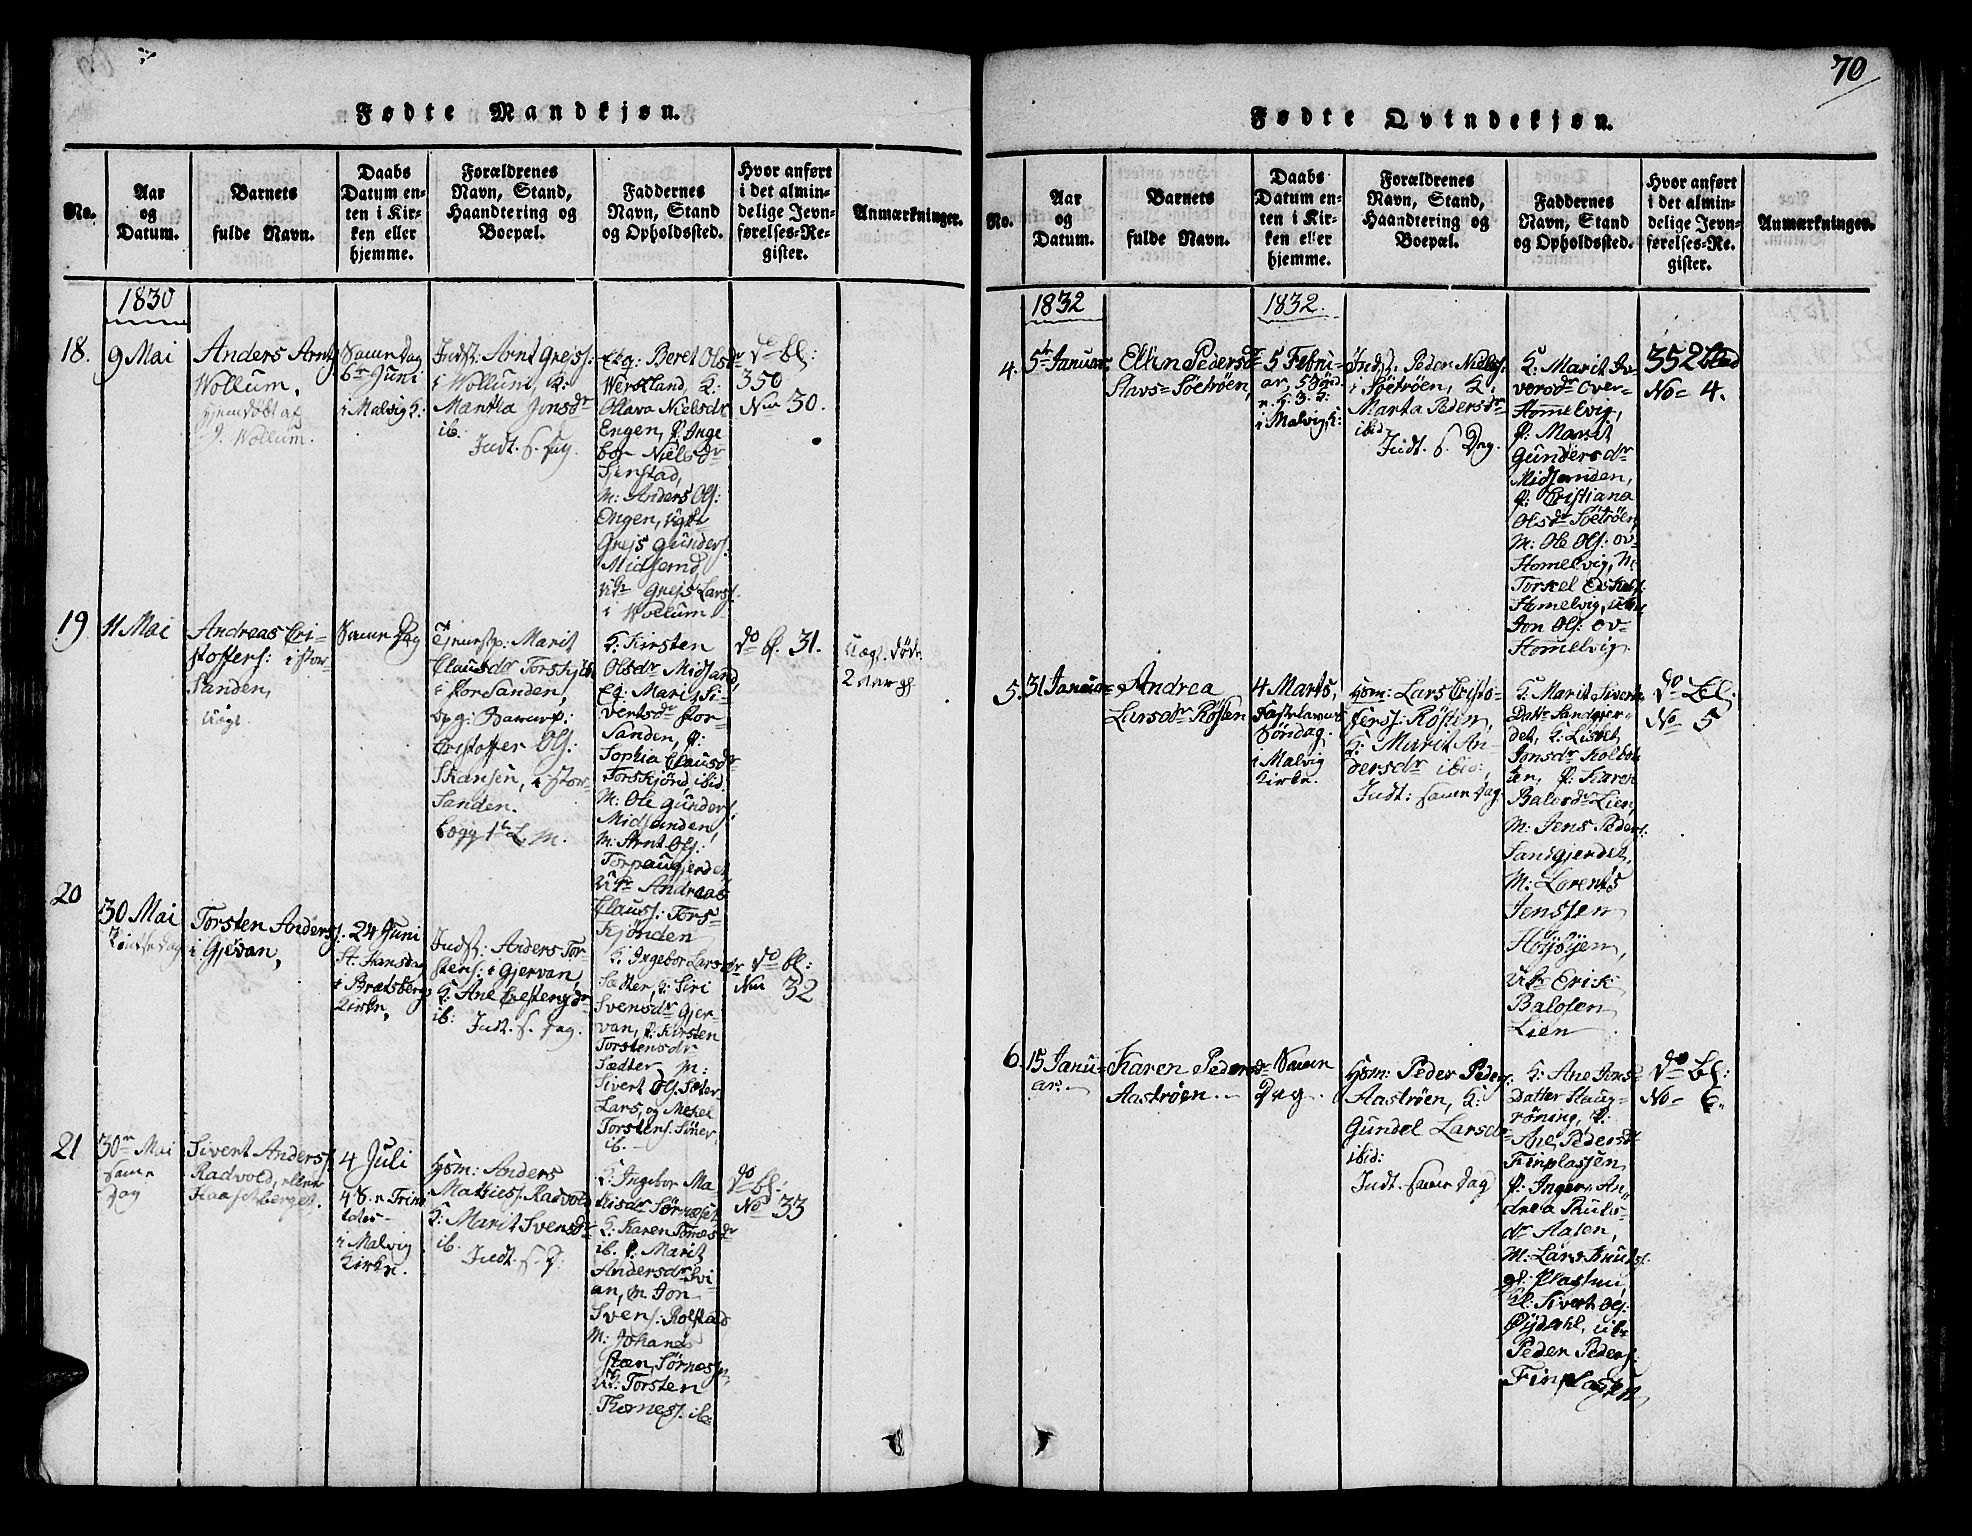 70
Fødte Mandkjøn.
No.
Aar
og
Datum.
Barnets
fulde Navn.
Daabs
Datum en-
ten i Kir-
ken eller
hjemme.
Forældrenes
Navn, Stand,
Haandtering og
Boepæl.
Faddernes
Navn, Stand
og Opholdssted.
Hvor anført
i det almin-
delige Jevn-
førelses-Re-
gister.
Anmærkninger.
1830
18.
9 Mai
Anders Arnts
Wollum,
hjemdøbt af
Wollum.
Samme Dag
6te Juni
i Malvig K:
Indst: Arnt Grejs:
i Wollum, K:
Jonsdr
ib.
Indt. s. Dag.
Eg: Beret Olsdr
Werkland, K:
Olava Nielsdr
Engen, P. Inge
bor Nielsdr
M: Anders Ols:
Engen,
Grejs Gunders:
Midsemd,
Grejs Lars:
i Wollum
do bl:
350
No 30.
19
11 Mai
Andreas Cri-
stoffers: i stor
Sanden,
Uægt.
Samme Dag
Marit
Clausdr Torskj
i storSanden,
Cristoffer Ols:
Skansen, i stor-
Sanden.
K: Kirsten
Olsdr Midsand,
Eg: Marit Si-
vertsdr stor
Sanden, P:
Sophia Clausdr
Torskjønd, ibid.
M: Ole Gunders:
Midsanden,
M: Arnt Ols:
Andreas
Clauss: Tors-
kjønden
do bl. 31.
Uægt. føde
20
30 Mai
Torsten Anders:
i Gjevan,
24 Juni
St. Hansdag
i Bratsberg
Kirke,
Indst: Anders Tor
stens: i Gjervan,
K: Ane
ib: Indt. s. Dag.
K: Ingebor Larsdr
Sædter, K: Siri
Svensdr Gjer-
van, P. Kirsten
Torstensdr
Sædter, M:
Sivert Ols: Sæter
Lars, og Mekel
Torstens: Søner
ib.
do bl:
No 32
21
30te Mai
samme
Dag
Sivert Anders:
Radvold, eller
4 Juli
4 S. e. Trini
tatis
i Malvig
Kirke.
Hsm: Anders
Mathies: Radvold
K: Marit Svensdr
ib. Indt. s. D.
K: Ingebor Ma
tisdr Sørnæset
K: Karen Tomæsdr
ib. P. Marit
Andersdr Svi
an, M. Jon
Svens: Rolstad
M: Johanes
Steen, Sørnæset
Torsten
Tomes: ib
do bl:
No 33
Fødte Qvindekjøn.
No.
Aar
og
Datum.
Barnets
fulde Navn.
Daabs
Datum en-
ten i Kir-
ken eller
hjemme.
Forældrenes
Navn, Stand,
Haandtering og
Boepæl.
Faddernes
Navn, Stand
og Opholdssted.
Hvor anført
i det almin-
delige Jevn-
førelses-Re-
gister.
Anmærkninger.
1832
1832.
4.
5te Januar
Ellin Pedersdr
Slavs-Søetrøen,
5 Febru-
ar, 5 Sønd.
i Malvig K:
Indst: Peder Niels:
i Søetrøen, K.
Marta Pedersdr
ibid.
Indt. s. Dag.
K: Marit I-
versdr Over-
Hommelvig,
P: Marit
Gundersdr
Midsanden,
P: Cristiana
Olsdr Søetrøen,
M: Ole Ols: ov-
Homelvig, M:
Torkel
Homelvig,
Jon Ols: ov-
Homelvig
352
No 4.
5.
31 Januar
Andrea
Larsdr Røsten
4 Marts,
Fastelavns
Søndag,
i Malvig
Kirke.
Hsm: Lars Cristo-
fers: Røsten,
K: Marit An
dersdr ibid:
Indt: samme Dag.
K: Marit Siverts
Datter Sandgjer-
det, K: Lisbet
Jonsdr
P: Karen
Balosdr Lien,
M: Jens Peders:
Sandgjerdet,
M: Lorents
Jensten
Høyøyen,
Erik
Balosen
Lien
do bl:
No 5
6.
15 Janu-
ar.
Karen Pedersdr
Aastrøen
Samme
Dag.
Hsm: Peder Peders:
Aastrøen, K:
Gundel Larsdr
ibid:
Indt. samme Dag
K: Ane Jons-
Datter Haug-
røning, P:
Ane Pedersdr
Finplassen
P. Inger An-
drea Pauls-
dr Aasen,
M: Lars Knuts:
Sivert Ols:
Øydahl,
Peder Peders:
Finplassen
do bl:
No 6.